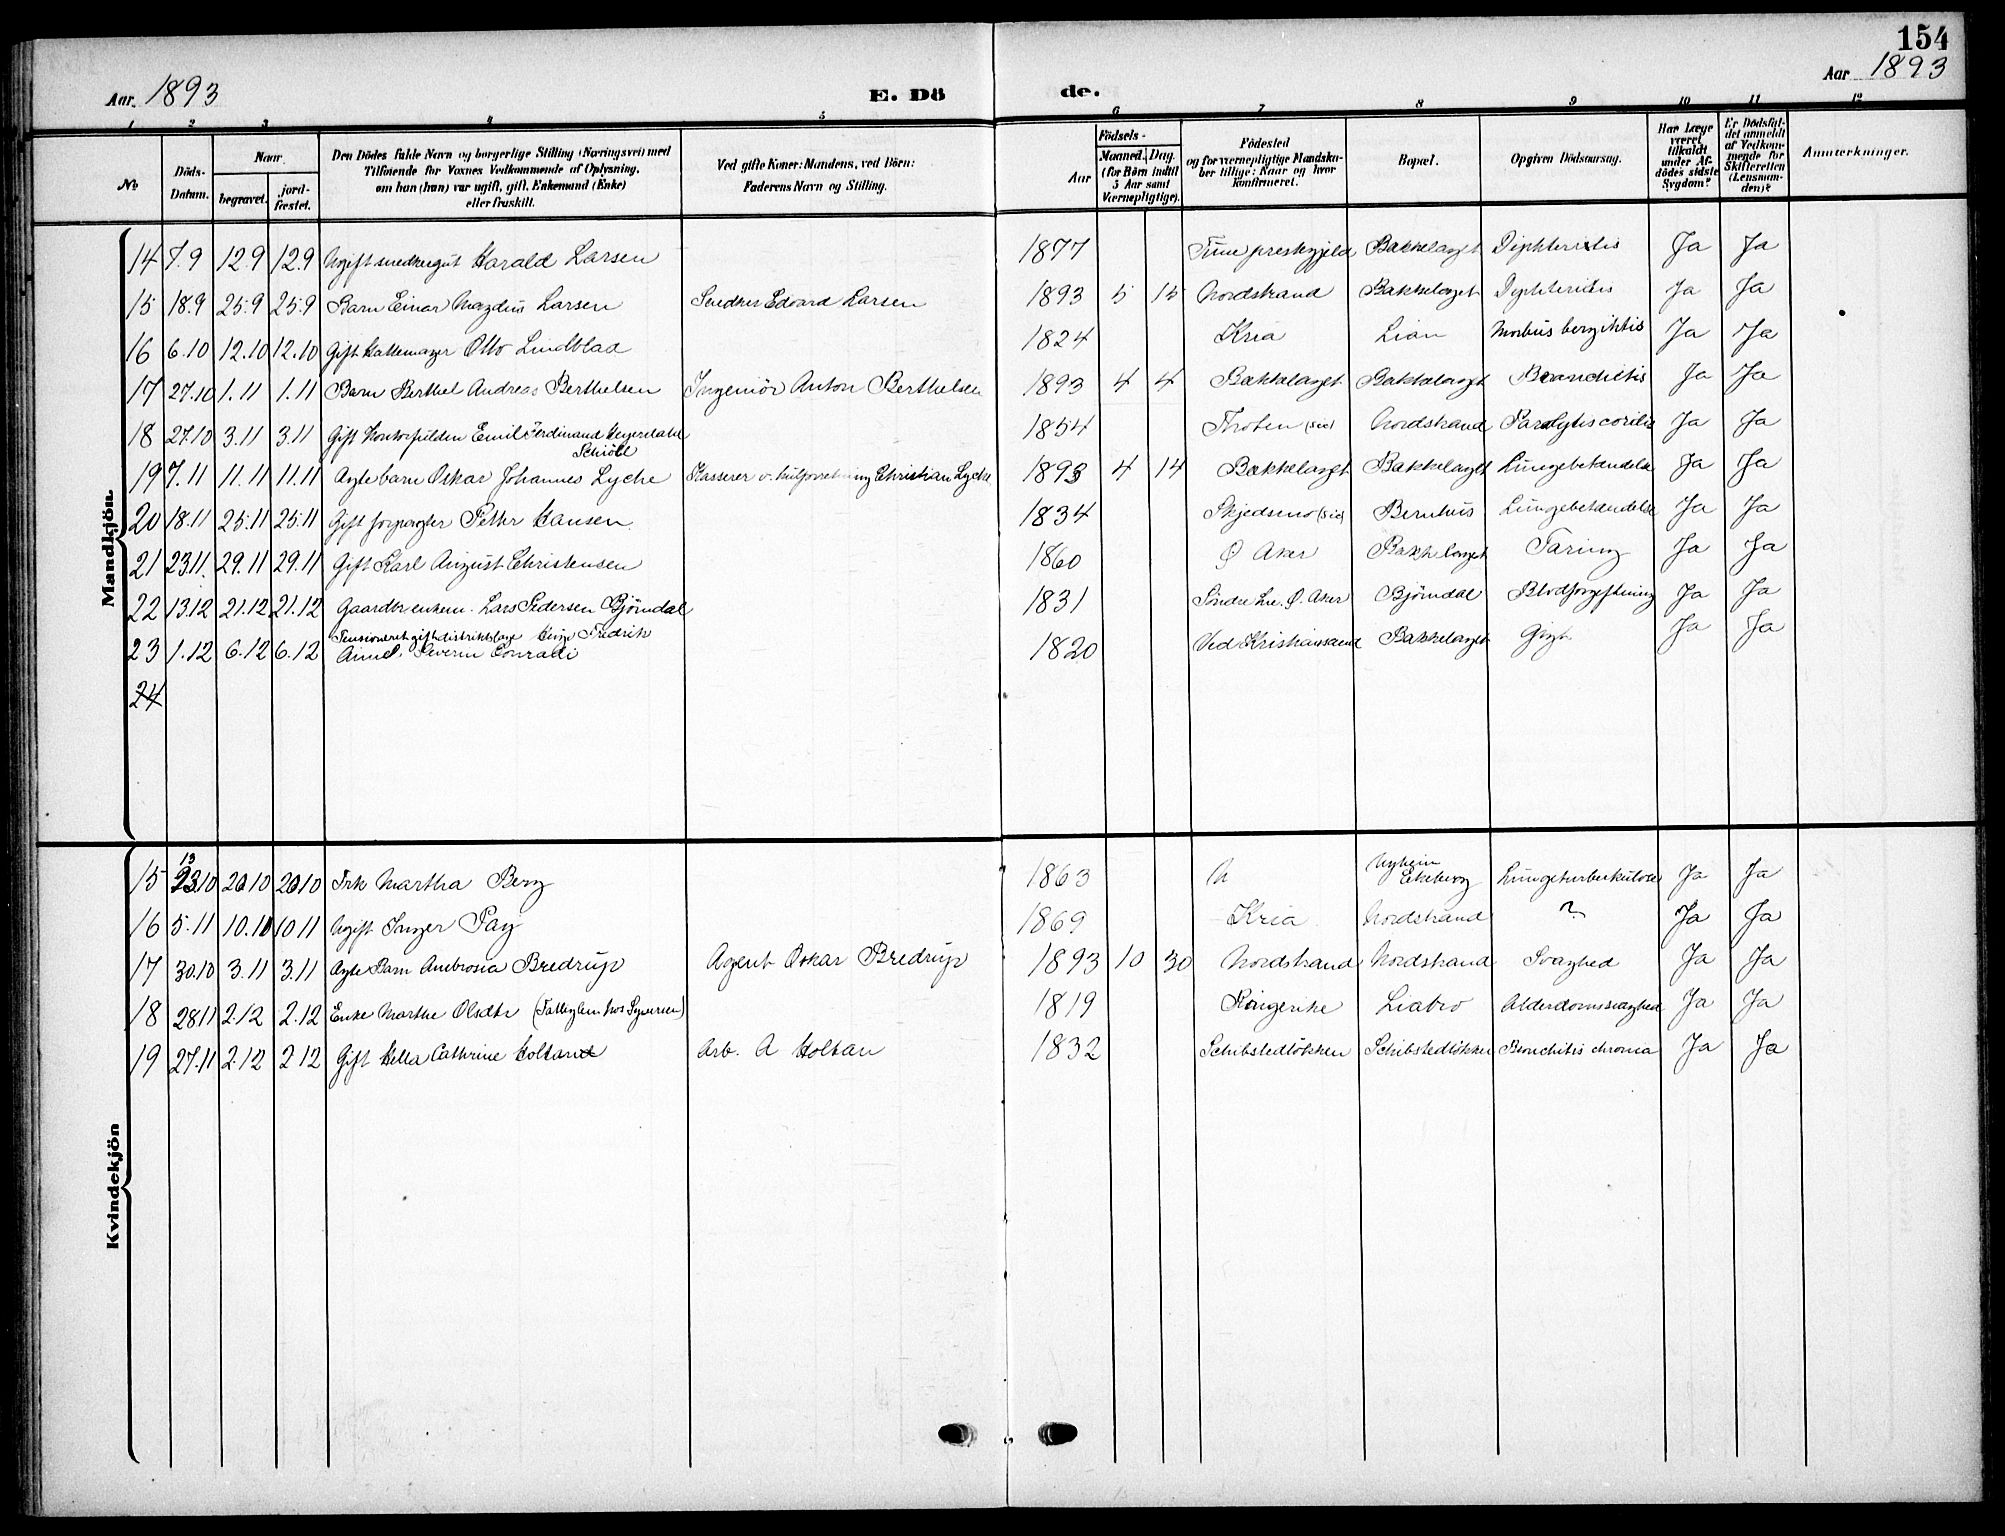 154
Aar. 1893
E. Dö
de.
Aar 1893
1 2 3 4 5 6 7 8 9 10 11 12
No
Döds-Datum.
Naar
begravet.
jord-fæstet.
Den Dödes fulde Navn og borgerlige Stilling (Næringsvei) med
Tilföiende for Voxnes Vedkommende af Oplysning,
om han (hun) var ugift, gift, Enkemand (Enke)
eller fraskilt.
Ved gifte Koner: Mandens, ved Börn:
Faderens Navn og Stilling.
Födsels-
Aar
Maaned. Dag.
(for Börn indtil
5 Aar samt
Værnepligtige).
Födested
og for værnepligtige Mandska-
ber tillige: Naar og hvor
konfirmeret.
Bopæl.
Opgiven Dödsaarsag.
Har Læge
været
tilkaldt
under Af-
dödes sidste
Sygdom?
Er Dödsfal-
det anmeldt
af Vedkom-
mende for
Skifteretten
(Lensman-
den)?
Anmerkninger.
Mandkjön.
14 7.9 12.9 12.9 Ugift snedkergut Harald Larsen 1877 Tune prestegjeld Bækkelaget Diphteritis Ja Ja
15 18.9 25.9 25.9 Barn Einar Magdus Larsen Snedker Edvard Larsen 1893 5 15 Nordstrand Bækkelaget Diphteritis Ja Ja
16 6.10 12.10 12.10 Gift Hattemager Otto Lindblad 1824 Kria Lian Morbus Ja Ja
17 27.10 1.11 1.11 Barn Berthel Andreas Berthelsen Ingeniör Anton Berthelsen 1893 4 4 Bækkelaget Bækkelaget Bronchitis Ja Ja
18 27.10 3.11 3.11 Gift Emil Ferdinand Hegerdahl
Schiöll 1854 Throten (sic) Nordstrand Ja Ja
19 7.11 11.11 11.11 Ægte barn Oskar Johannes Lyche Kasserer v. Christian Lyche 1893 4 14 Bækkelaget Bækkelaget Lungebetændelse Ja Ja
20 18.11 25.11 25.11 Gift forpagter Petter Hansen 1834 Skjedsmo (sic) Bernhus Lungebetændelse Ja Ja
21 23.11. 29.11 29.11 Gift Karl August Christensen 1860 Ø Aker Bækkelaget Tæring Ja Ja
22 13.12 21.12 21.12 Gaardbr enkem. Lars Pedersen Björndal 1831 Söndre Ø. Aker Björndal Blodforgiftning Ja Ja
23 1.12 6.12 6.12 Pensioneret gift distriktslæge Fredrik
Severin Conradi 1820 Ved Kristianssand Bækkelaget Gigt Ja Ja
24
Kvindekjön
15 13
23.10 20.10 20.10 Frk Martha Berg 1863 N Nyheim
Ekeberg Lungeturberkulose Ja Ja
16 5.11 10.11 10 11 Ugift Inger Pay 1869 Kria Nordstrand ? Ja Ja
17 30.10 3.11 3.11 Ægte Barn Ambrosia Bredrup Agent Oskar Bredrup 1893 10 30 Nordstrand Nordstrand Svaghed Ja Ja
18 28 11 2.12 2.12 Enke Marthe Olsdtr (Fattiglem hos Syversen) 1819 Ringerike Liabro Alderdomssvaghed Ja Ja
19 27.11 2.12 2 12 Gift Hella Cathrine Holtand Arb. A Holtan 1832 Schibstedlökken Schibstedlökken Bronchitis chronia Ja Ja